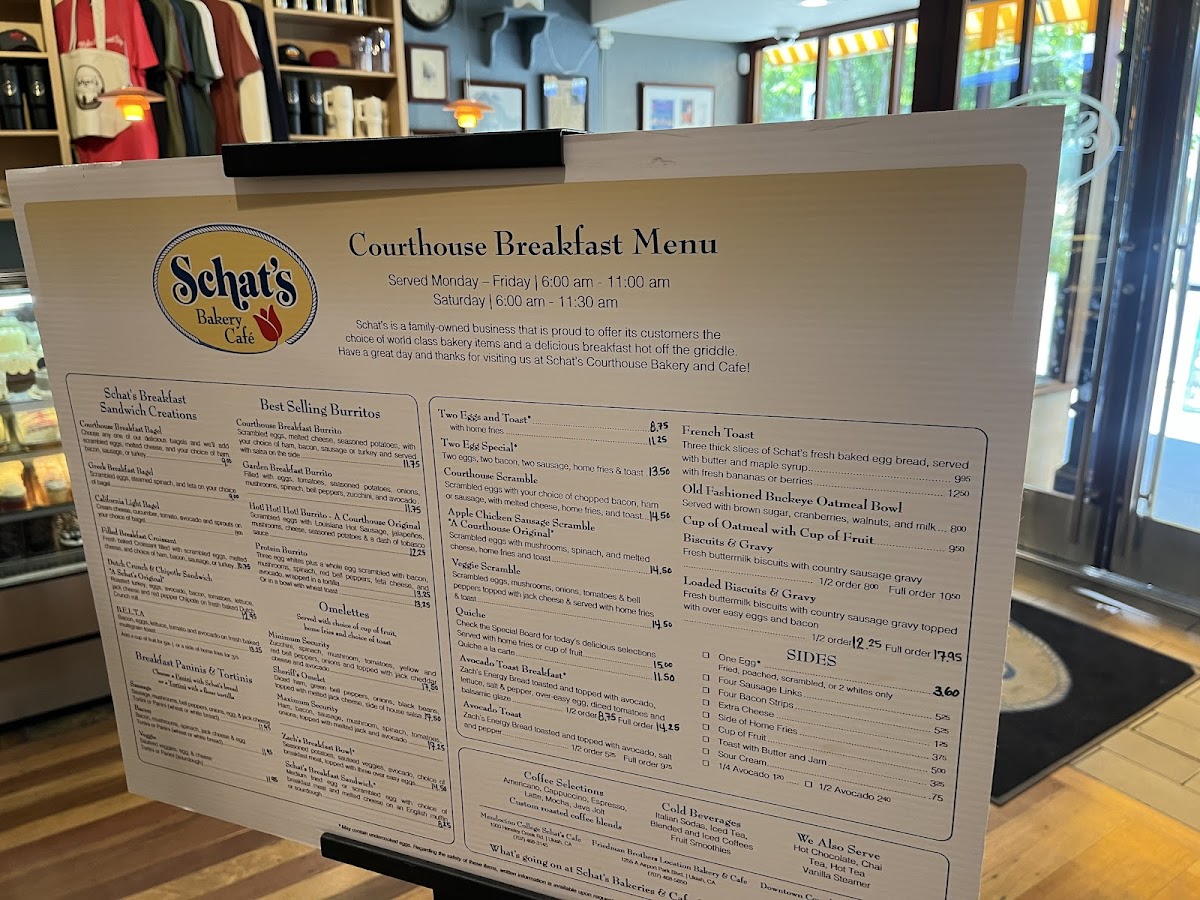 Schat's
Bakery
Café
Courthouse Breakfast Menu
Served Monday – Friday | 6:00 am - 11:00 am
Saturday | 6:00 am - 11:30 am
Schat's is a family-owned business that is proud to offer its customers the
choice of world class bakery items and a delicious breakfast hot off the griddle.
Have a great day and thanks for visiting us at Schat's Courthouse Bakery and Cafe!
Schat's Breakfast
Sandwich Creations
Courthouse Breakfast Bagel
Choose any one of our delicious bagels and we'll add
scrambled eggs, melted cheese, and your choice of ham,
bacon, sausage, or turkey
Greek Breakfast Bagel
Scrambled eggs, steamed spinach, and feta on your choice
of bagel
California Light Bagel
Cream cheese, cucumber, tomato, avocado and sprouts on
your choice of bagel
Filled Breakfast Croissant
Fresh baked Croissant filled with scrambled eggs, melted
cheese, and choice of ham, bacon, sausage, or turkey
Dutch Crunch & Chipotle Sandwich
"A Schat's Original"
Roasted turkey, eggs, avocado, bacon, tomatoes, lettuce,
jack cheese and red pepper Chipotle on fresh baked Dutch
Crunch roll
B.E.L.T.A.
Bacon, eggs, lettuce, tomato and avocado on fresh baked
multigrain toast 13.25
Breakfast Paninis & Tortinis
Choose a Panini with Schat's bread
or a Tortini with a flour tortilla
Sausage
Sausage, mushrooms, bell peppers, onions, egg, & jack cheese
Tortini or Panini (wheat or white bread) 11.95
Bacon
Bacon, mushrooms, spinach, jack cheese & egg
Tortini or Panini (wheat or white bread) 11.95
Veggie
Sauteed veggies, egg, & cheese
Tortini or Panini (sourdough) 11.95
Best Selling Burritos
Courthouse Breakfast Burrito
Scrambled eggs, melted cheese, seasoned potatoes, with
your choice of ham, bacon, sausage or turkey and served
with salsa on the side 11.75
Garden Breakfast Burrito
Filled with eggs, tomatoes, seasoned potatoes, onions,
mushrooms, spinach, bell peppers, zucchini, and avocado
11.75
Hot! Hot! Hot! Burrito - A Courthouse Original
Scrambled eggs with Louisiana Hot Sausage, jalapeños,
mushrooms, cheese, seasoned potatoes & a dash of tobasco
sauce 12.25
Protein Burrito
Three egg whites plus a whole egg scrambled with bacon,
mushrooms, spinach, red bell peppers, feta cheese, and
avocado, wrapped in a tortilla 13.25
Or in a bowl with wheat toast 13.25
Omelettes
Served with choice of cup of fruit,
home fries and choice of toast
Minimum Security
Zucchini, spinach, mushroom, tomatoes, yellow and
red bell peppers, onions and topped with jack cheddar
cheese and avocado 17.50
Sheriff's Omelet
Diced ham, green bell peppers, onions, black beans,
topped with melted jack cheese, side of house salsa 17.50
Maximum Security
Ham, bacon, sausage, mushroom, spinach, tomatoes,
onions, topped with melted jack and avocado 17.25
Zach's Breakfast Bowl*
Seasoned potatoes, sauteed veggies, avocado, choice of
breakfast meat, topped with three over easy eggs 14.50
Schat's Breakfast Sandwich*
Medium fried egg or scrambled egg with choice of
breakfast meat and melted cheese on an English muffin
or sourdough 8.25
Two Eggs and Toast* 8.75
with home fries 11.25
Two Egg Special*
Two eggs, two bacon, two sausage, home fries & toast 13.50
Courthouse Scramble
Scrambled eggs with your choice of chopped bacon, ham
or sausage, with melted cheese, home fries, and toast 14.50
Apple Chicken Sausage Scramble
"A Courthouse Original"
Scrambled eggs with mushrooms, spinach, and melted
cheese, home fries and toast 14.50
Veggie Scramble
Scrambled eggs, mushrooms, onions, tomatoes & bell
peppers topped with jack cheese & served with home fries
& toast 14.50
Quiche
Check the Special Board for today's delicious selections
Served with home fries or cup of fruit 15.00
Quiche a la carte 11.50
Avocado Toast Breakfast*
Zach's Energy Bread toasted and topped with avocado,
lettuce, salt & pepper, over-easy egg, diced tomatoes and
balsamic glaze 1/2 order 8.75 Full order 14.25
Avocado Toast
Zach's Energy Bread toasted and topped with avocado, salt
and pepper 1/2 order 6.25 Full order 9.75
French Toast
Three thick slices of Schat's fresh baked egg bread, served
with butter and maple syrup 9.95
with fresh bananas or berries 12.50
Old Fashioned Buckeye Oatmeal Bowl
Served with brown sugar, cranberries, walnuts, and milk 8.00
Cup of Oatmeal with Cup of Fruit 9.50
Biscuits & Gravy
Fresh buttermilk biscuits with country sausage gravy
1/2 order 8.00 Full order 10.50
Loaded Biscuits & Gravy
Fresh buttermilk biscuits with country sausage gravy topped
with over easy eggs and bacon
1/2 order 12.25 Full order 17.95
SIDES
One Egg*
Fried, poached, scrambled, or 2 whites only 3.60
Four Sausage Links 5.25
Four Bacon Strips 5.25
Extra Cheese 1.25
Side of Home Fries 3.75
Cup of Fruit 5.00
Toast with Butter and Jam 3.25
Sour Cream .75
1/4 Avocado 1.20
1/2 Avocado 2.40
Coffee Selections
Americano, Cappuccino, Espresso,
Latte, Mocha, Java Jolt
Custom roasted coffee blends
Cold Beverages
Italian Sodas, Iced Tea,
Blended and Iced Coffees
Fruit Smoothies
We Also Serve
Hot Chocolate, Chai
Tea, Hot Tea
Vanilla Steamer
Mendocino College Schat's Cafe
1000 Hensley Creek Rd. | Ukiah, CA
Friedman Brothers Location Bakery & Cafe
1255 A Airport Park Blvd. | Ukiah, CA
(707) 468-5850
Downtown
What's going on at Schat's Bakeries & Cafe
* May contain undercooked eggs. Regarding the safety of these items, written information is available upon